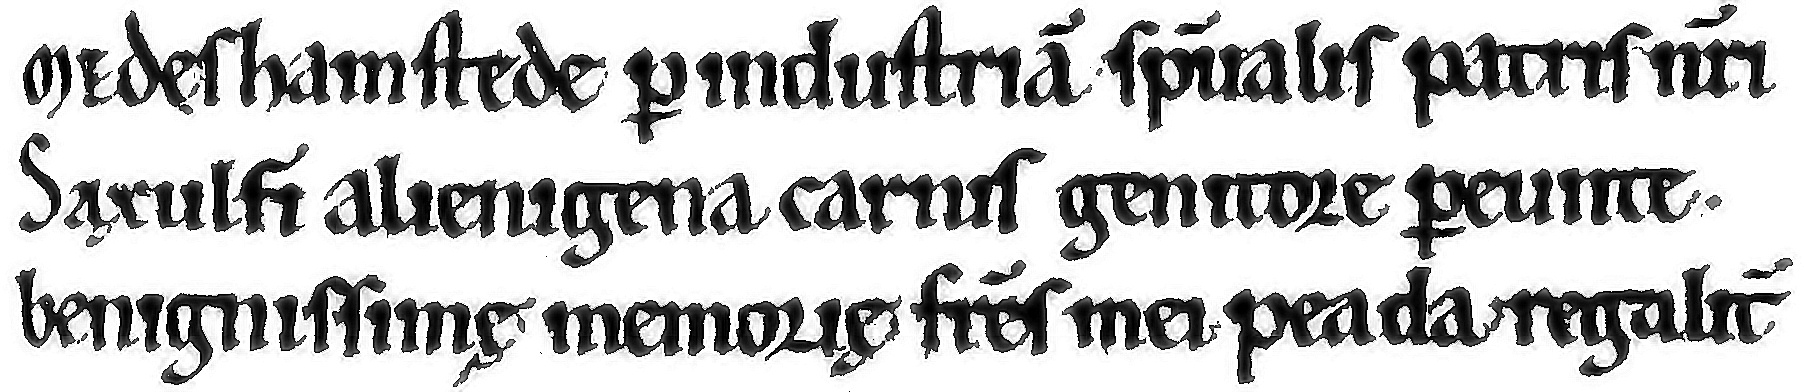 MEdęshamstede ꝑ industriā sp̄ualis patris nr̄i
Saxulfi alienigena carnis genitore ꝑeunte.
benignissimę memorię fr̄is mei peada regalit̄